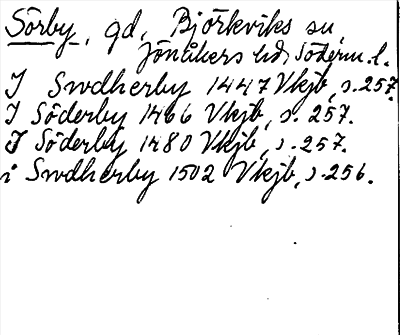 Sörby, gd, Björkviks sn,
Jönåkers hd, Söderm. l.
I Swdherby 1447 Vkjb, s. 257.
I Söderby 1466 Vkjb, s. 257.
I Söderby 1480 Vkjb, s. 257.
i Swdherby 1502 Vkjb, s. 256.